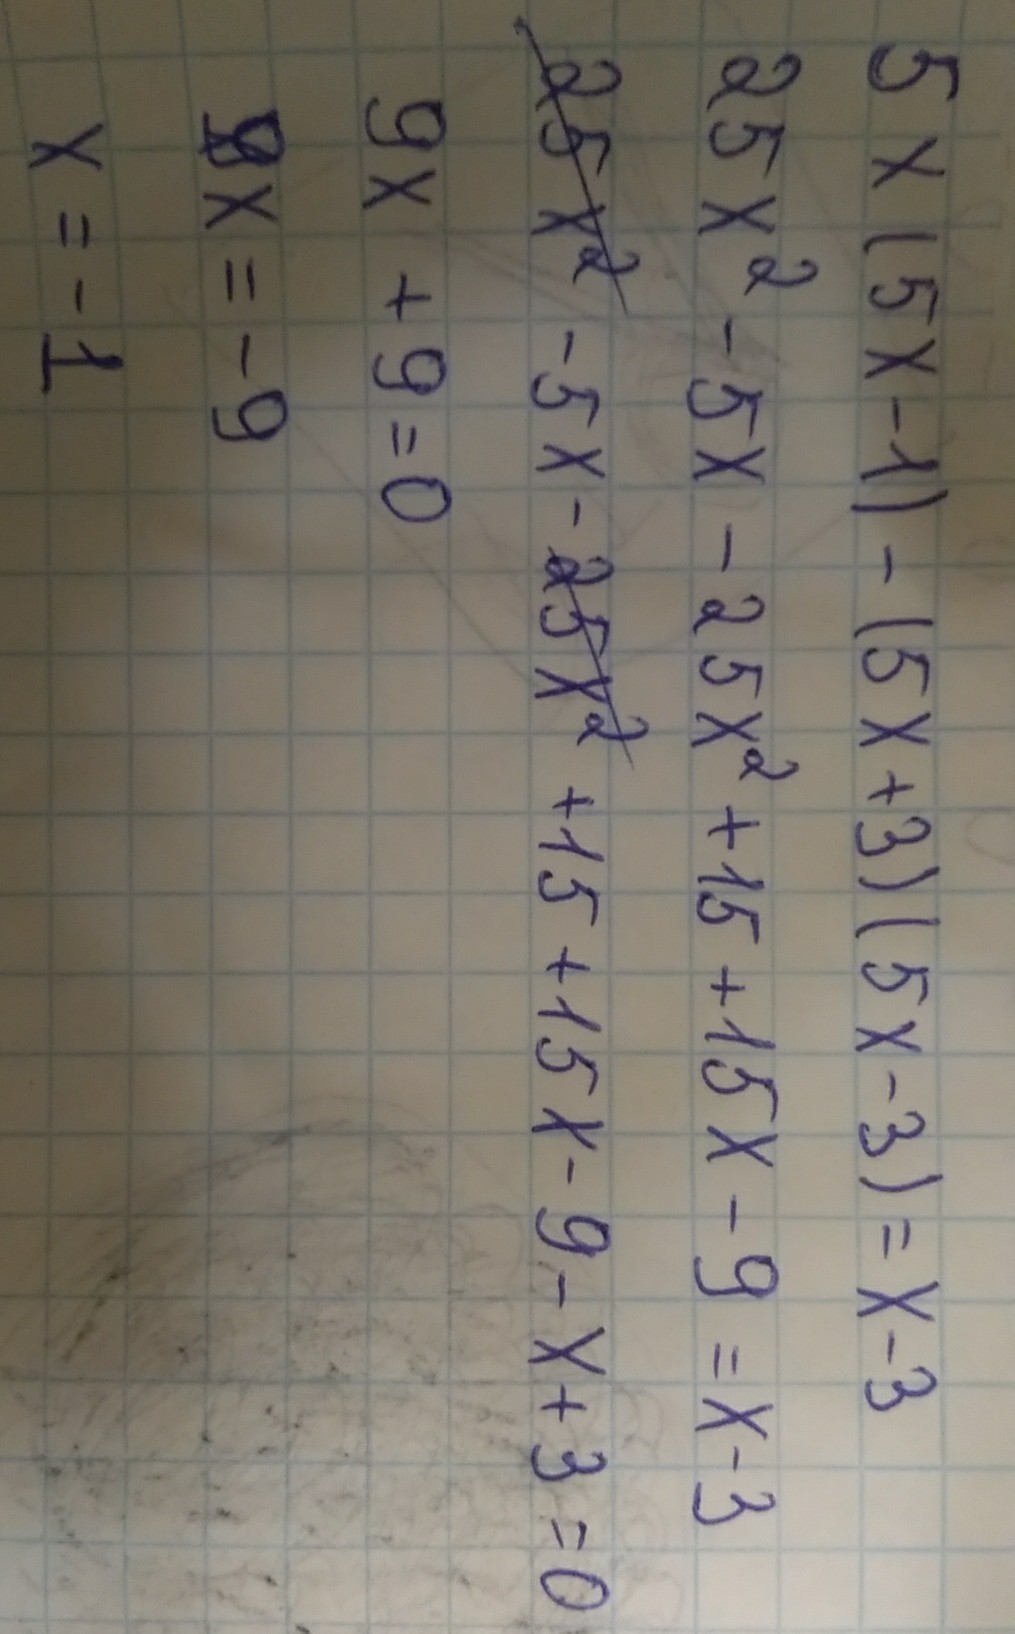 5x(5x-1)-(5x+3)(5x-3)=x-3
25x²-5x-25x²+15+15x-9=x-3
25x²-5x-25x²+15+15x-9-x+3=0
9x+9=0
9x=-9
x=-1